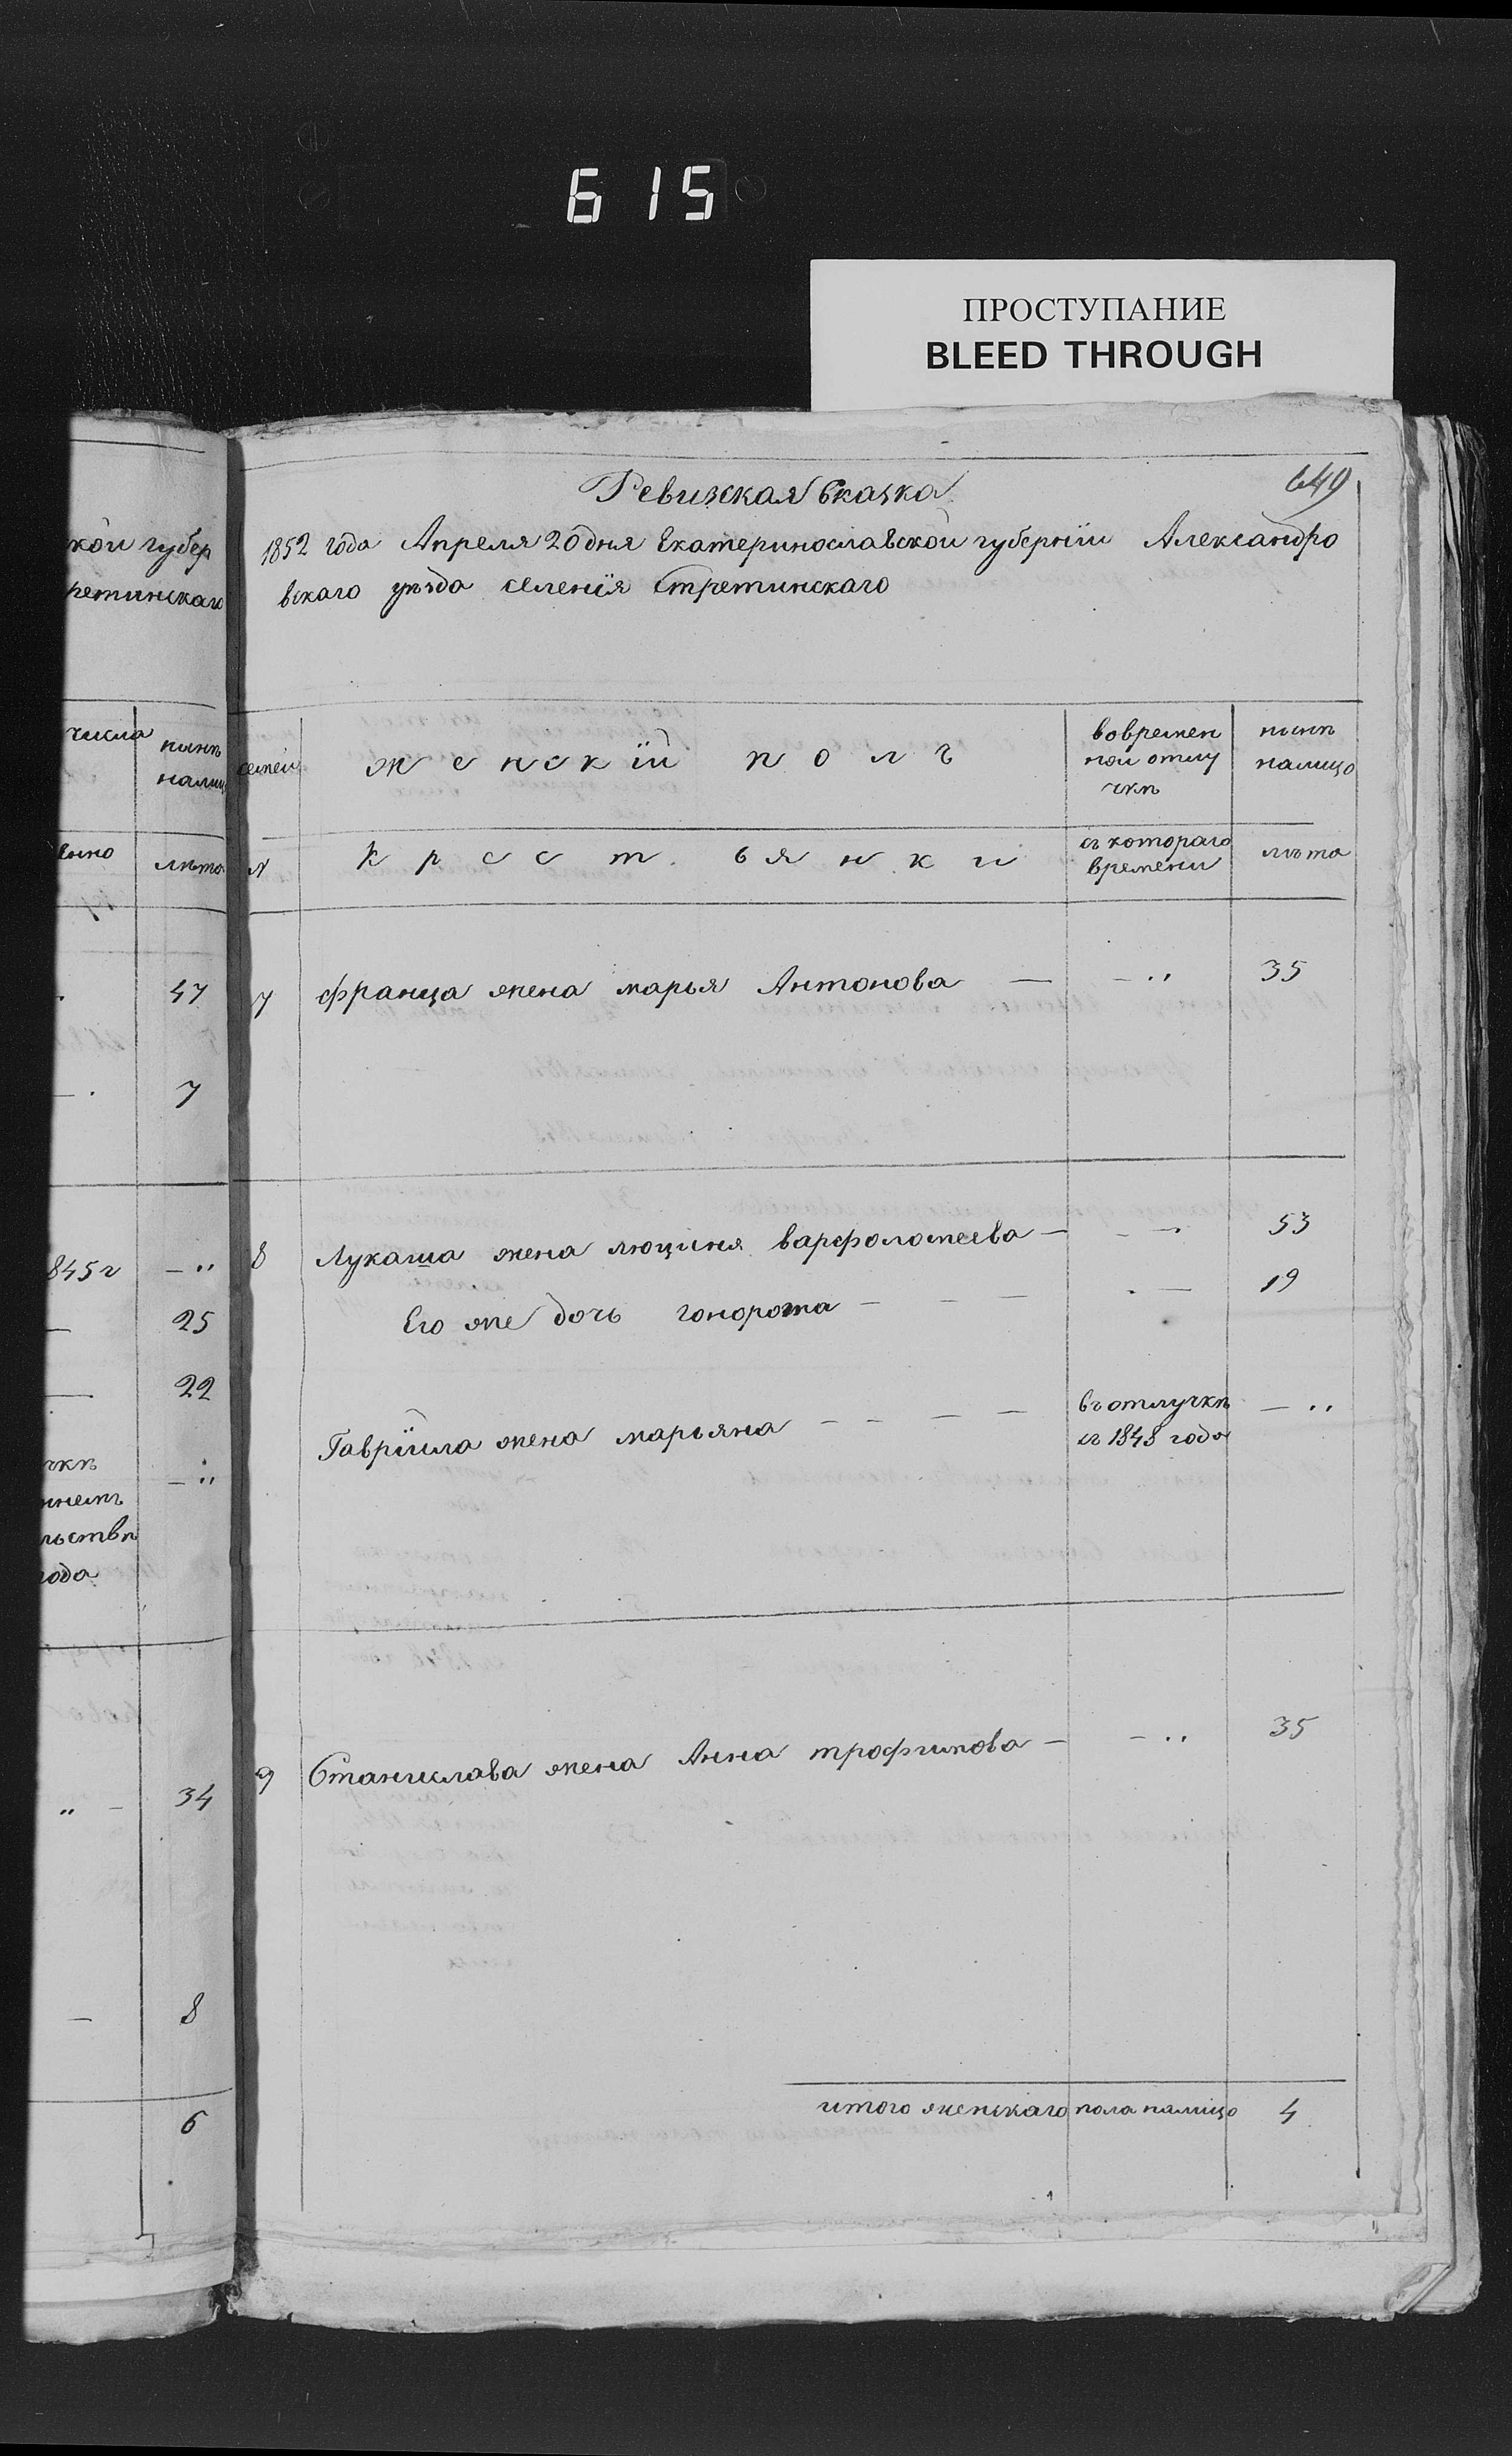 615
ПРОСТУПАНИЕ
BLEED THROUGH
649
Ревизская Сказка
1852 года Апреля 20 дня Екатеринославской губернïи Александро
вскаго уѣзда селенïя Стретинскаго
кой губер
ретинскаго
числа
нынѣ
налицо
лѣта
47
7
845г — "
25
22
— "
чкѣ
льствѣ
года
" — 34
— 8
6
семей женскïй полъ вовремен
ной отлу
чкѣ нынѣ
налицо
№ Крест ьянки съ котораго
времени лѣта
7 Франца жена марья Антонова — — " 35
8 Лукаша жена люциня варфоломеева — — 53
Его же дочь гонората — — — — 19
Гаврïила жена марьяна — — — — въ отлучкѣ — "
съ 1848 года
9 Станислава жена Анна трофимова — — " 35
итого женскаго пола налицо 4